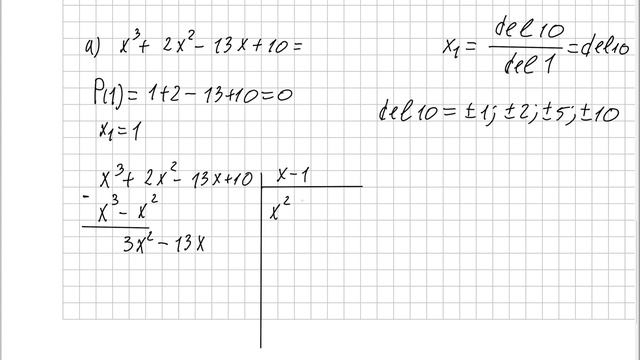 a) x³ + 2x² - 13x + 10 =
x₁ = del 10 / del 1 = del 10
P(1) = 1 + 2 - 13 + 10 = 0
del 10 = ±1; ±2; ±5; ±10
x₁ = 1
x³ + 2x² - 13x + 10 | x - 1
- x³ - x² | x²
3x² - 13x